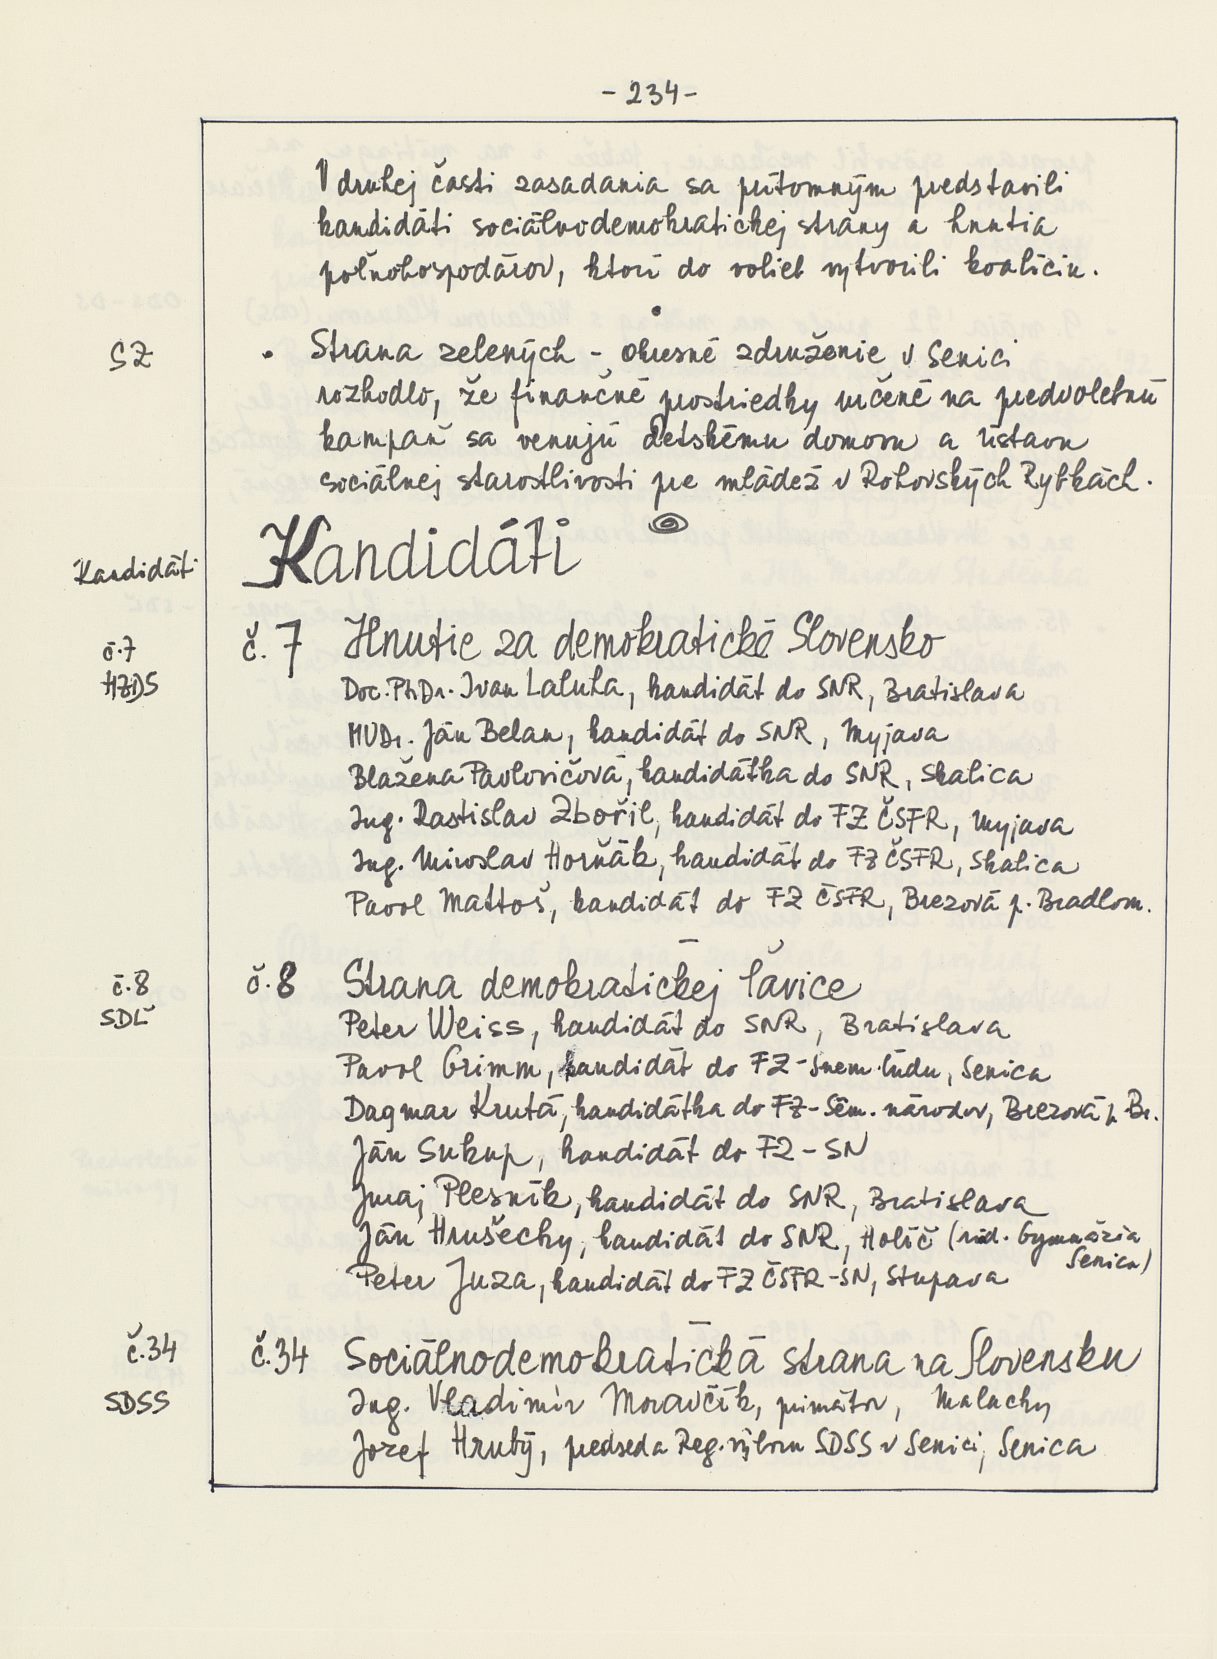 - 234 -
V druhej časti zasadania sa prítomným predstavili
kandidáti sociálnodemokratickej strany a hnutia
poľnohospodárov, ktorí do volieb vytvorili koalíciu.
SZ
• Strana zelených - okresné združenie v Senici
rozhodlo, že finančné prostriedky určené na predvolebnú
kampaň sa venujú detskému domovu a ústavu
sociálnej starostlivosti pre mládež v Rohovských Rybkách.
Kandidáti
Kandidáti
č.7
HZDS
č. 7 Hnutie za demokratické Slovensko
Doc. PhDr. Ivan Laluha, kandidát do SNR, Bratislava
MUDr. Ján Belan, kandidát do SNR, Myjava
Blažena Pavlovičová, kandidátka do SNR, Skalica
Ing. Rastislav Zbořil, kandidát do FZ ČSFR, Myjava
Ing. Miroslav Horňák, kandidát do FZ ČSFR, Skalica
Pavol Mattoš, kandidát do FZ ČSFR, Brezová p. Bradlom.
č.8
SDĽ
č.8 Strana demokratickej ľavice
Peter Weiss, kandidát do SNR, Bratislava
Pavol Grimm, kandidát do FZ - Snem. ľudu, Senica
Dagmar Krutá, kandidátka do FZ - Sňm. národov, Brezová p. Br.
Ján Sukup, kandidát do FZ - SN
Juraj Plesník, kandidát do SNR, Bratislava
Ján Hrušecky, kandidát do SNR, Holíč (riad. Gymnázia
Senica)
Peter Juza, kandidát do FZ ČSFR - SN, Stupava
č.34
SDSS
č.34 Sociálnodemokratická strana na Slovensku
Ing. Vladimír Moravčík, primátor, Malacky
Jozef Hrubý, predseda Reg. výboru SDSS v Senici, Senica